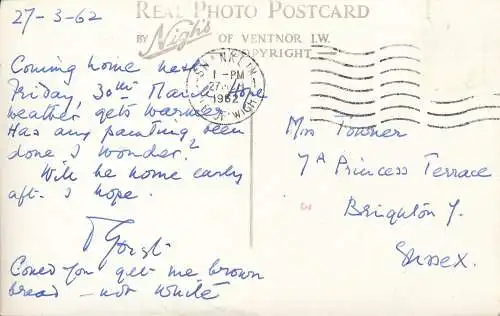 27-3-62
REAL PHOTO POSTCARD
BY Nigh's OF VENTNOR I.W.
COPYRIGHT.
SHANKLIN
1 - PM
27 MAR
1962
I. OF WIGHT
Coming home next
Friday, 30th March. Hope
weather gets warmer.
Has any painting been
done I wonder?
Will be home early
aft. I hope.
Could you get me brown
bread - not white
Mrs Towner
7A Princess Terrace
Brighton 7.
Sussex.